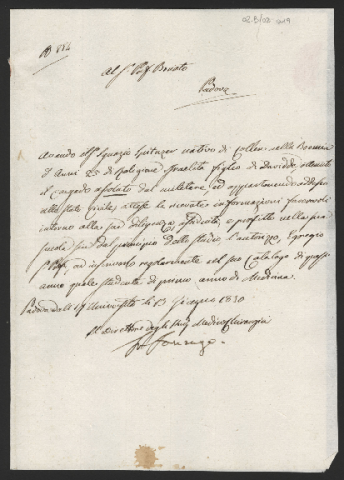 028/08 019
N 814
Al Sr. Prof. Brunato
Padova
Avendo il Sr. Ignazio Spitzer nativo di Collen nella Boemia
d'Anni 25 di Religione Israelita figlio di Davidde, ottenuto
il congedo assoluto dal militare, ed appartenendo adesso
allo stato civile, attese le ricevute informazioni favorevoli
intorno alla sua diligenza, assiduità, e profitto nella
dal principio dello studio, l'autorizzo, Egregio
Sr. Prof., ad inscriverlo regolarmente nel suo Catalogo di
anno quale studente di primo anno di Medicina.
Padova dall' I. R. Università li 13 Giugno 1830
Il Direttore degli Studj Medico Chirurgici